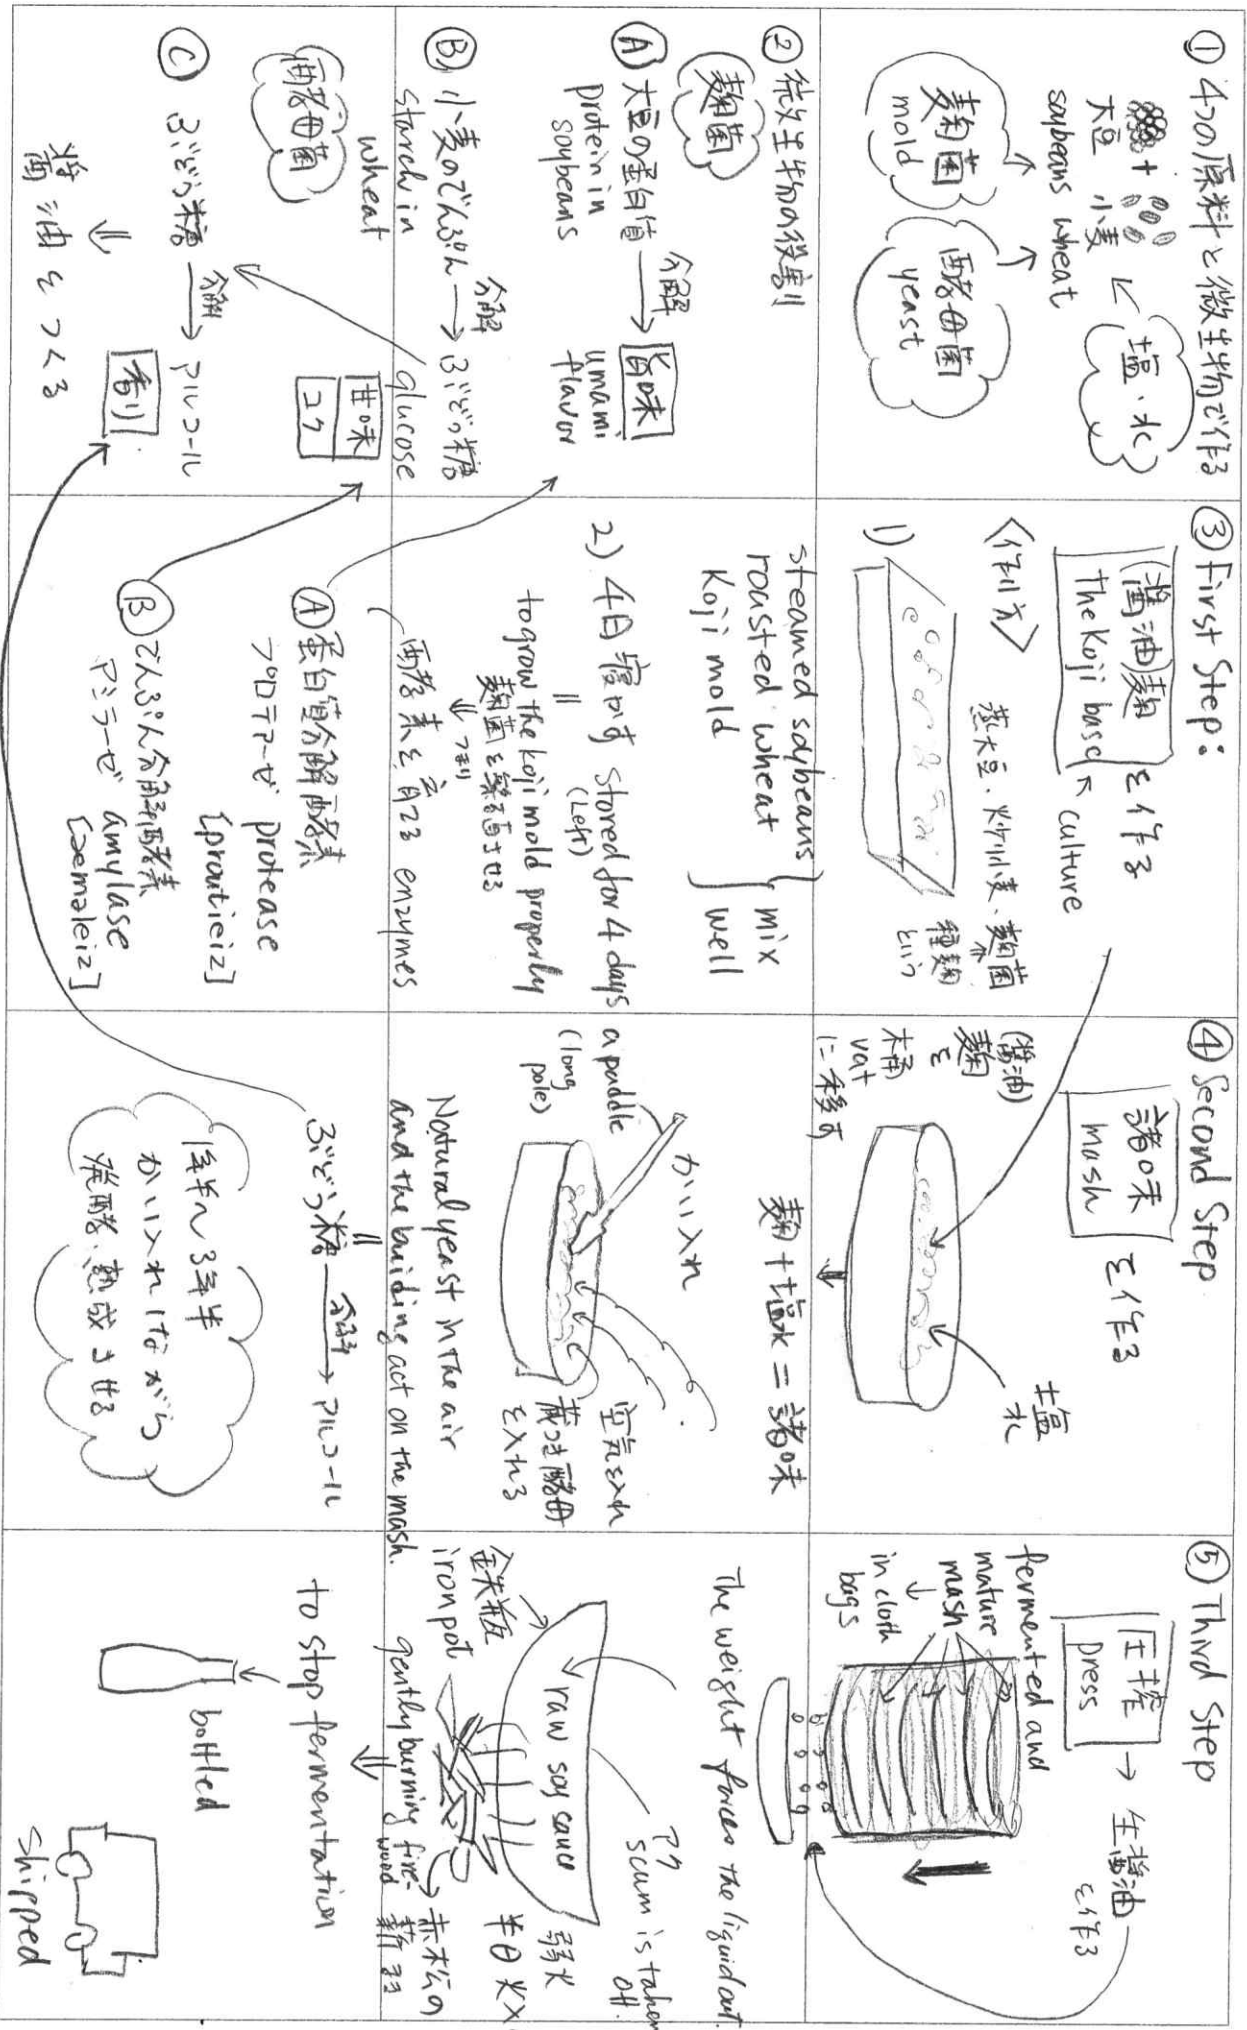 ① 4つの原料と微生物で作る
大豆 + 小麦
soybeans wheat
塩、水
麹菌
mold
酵母菌
yeast
② 微生物の役割
麹菌
Ⓐ 大豆の蛋白質 分解→ 旨味
protein in
soybeans
umami
flavor
Ⓑ 小麦のでんぷん 分解→ ぶどう糖
starch in
wheat
glucose
甘味
コク
酵母菌
Ⓒ ぶどう糖 分解→ アルコール
香り
⇓
醤油をつくる
③ First Step:
(醤油)麹 を作る
The Koji base
culture
〈作り方〉
1)
蒸大豆、炒小麦、麹菌
種麹
という
steamed soybeans
roasted wheat
Koji mold
mix
well
2) 4日寝かす stored for 4 days
(Left)
to grow the koji mold properly
麹菌を繁殖させる
⇓ つまり
酵素を育てる enzymes
Ⓐ 蛋白質分解酵素
プロテアーゼ protease
[proutieiz]
Ⓑ でんぷん分解酵素
アミラーゼ amylase
[æməleiz]
④ Second Step
諸味 を作る
mash
(醤油)
麹
を
木桶
vat
に移す
塩
水
麹+塩水=諸味
かい入れ
a paddle
(long
pole)
空気を入れ
蔵つき酵母
を入れる
Natural yeast in the air
and the building act on the mash.
ぶどう糖 分解→ アルコール
1年半〜3年半
かい入れしながら
発酵、熟成させる
⑤ Third Step
圧搾 → 生醤油
press
を作る
fermented and
mature
mash
↓
in cloth
bags
The weight forces the liquid out.
アク
scum is taken
off.
raw soy sauce
鉄瓶
iron pot
弱火
半日火入
gently burning fire-
wood
赤松の
薪
to stop fermentation
bottled
shipped